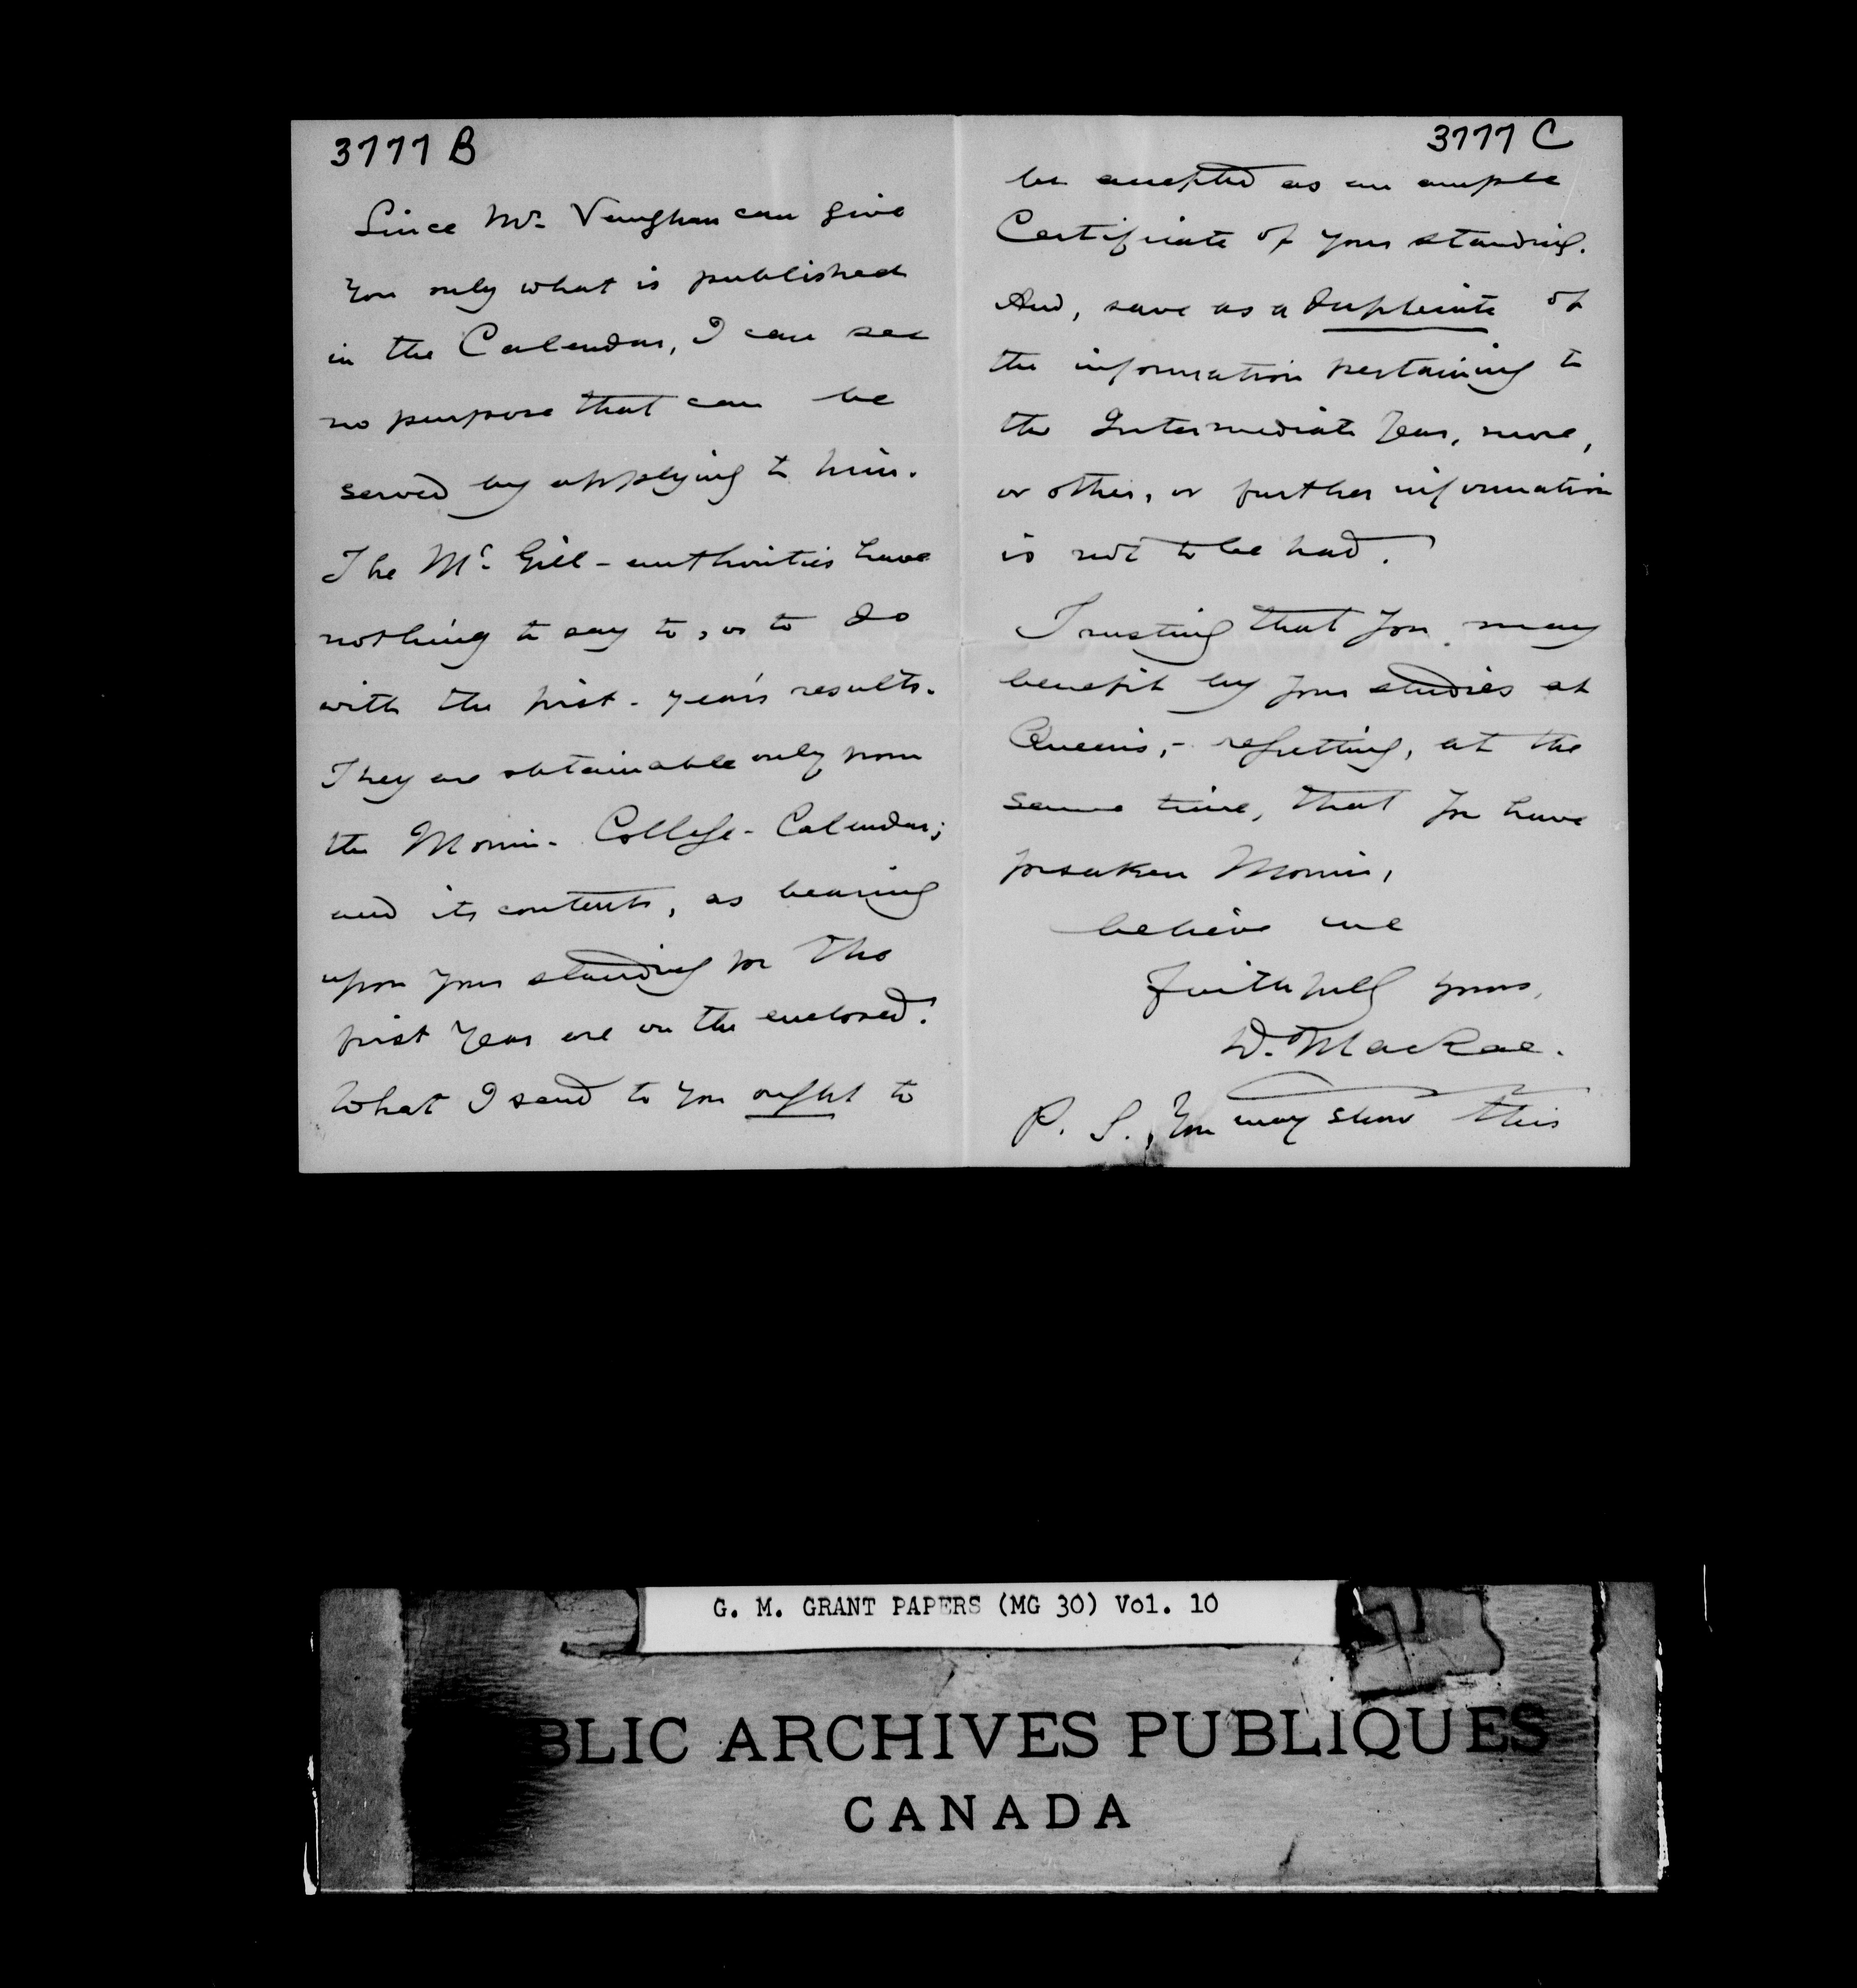 3777 B
Since Mr. Vaughan can give
you only what is published
in the Calendar, I can see
no purpose that can be
served by applying to him.
The McGill-authorities have
nothing to say to, or to do
with the first-year's results.
They are obtainable only from
the Morrin-College-Calendar;
and its contents, as bearing
upon your standing for the
first Year are on the enclosed.
What I send to you ought to
3777 C
be accepted as an ample
Certificate of your standing.
And, save as a duplicate of
the information pertaining to
the Intermediate Year, more,
or other, or further information
is not to be had.
Trusting that you may
benefit by your studies at
Queen's,- regretting, at the
same time, that you have
forsaken Morrin,
believe me
faithfully yours,
D. MacRae.
P. S., You may show this
G. M. GRANT PAPERS (MG 30) Vol. 10
BLIC ARCHIVES PUBLIQUES
CANADA